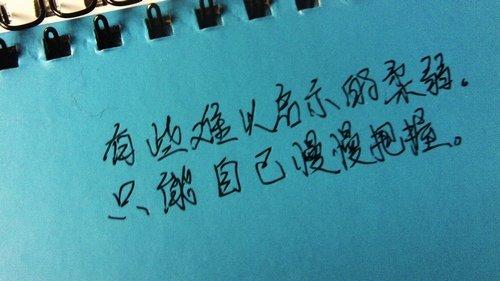 有些难以启示的柔弱。
只能自己慢慢把握。